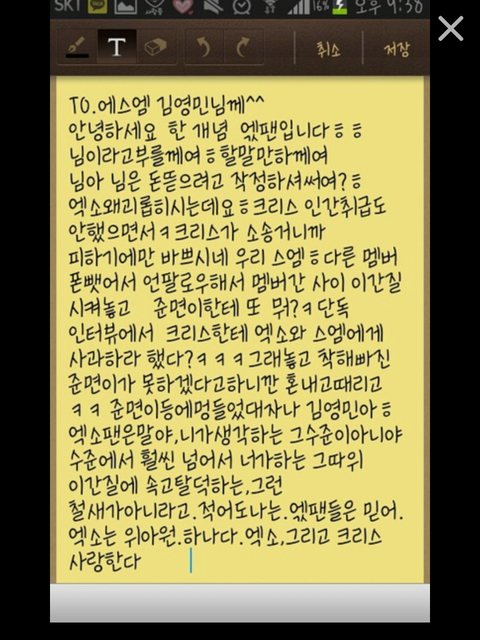 SKT 16% 오후 9:38
T 취소 저장
TO.에스엠 김영민님께^^
안녕하세요 한 개념 엑팬입니다ㅎㅎ
님이라고부를께여ㅎ할말만하께여
님아 님은 돈뜯으려고 작정하셔써여?ㅎ
엑소왜괴롭히시는데요ㅎ크리스 인간취급도
안했으면서ㅋ크리스가 소송거니까
피하기에만 바쁘시네 우리 스엠ㅎ다른 멤버
폰뺏어서 언팔로우해서 멤버간 사이 이간질
시켜놓고 준면이한테 또 뭐?ㅋ단독
인터뷰에서 크리스한테 엑소와 스엠에게
사과하라 했다?ㅋㅋㅋ그래놓고 착해빠진
준면이가 못하겠다고하니깐 혼내고때리고
ㅋㅋ 준면이등에멍들었대자나 김영민아ㅎ
엑소팬은말야,니가생각하는 그수준이아니야
수준에서 훨씬 넘어서 너가하는 그따위
이간질에 속고탈덕하는,그런
철새가아니라고.적어도나는.엑팬들은 믿어.
엑소는 위아원.하나다.엑소,그리고 크리스
사랑한다